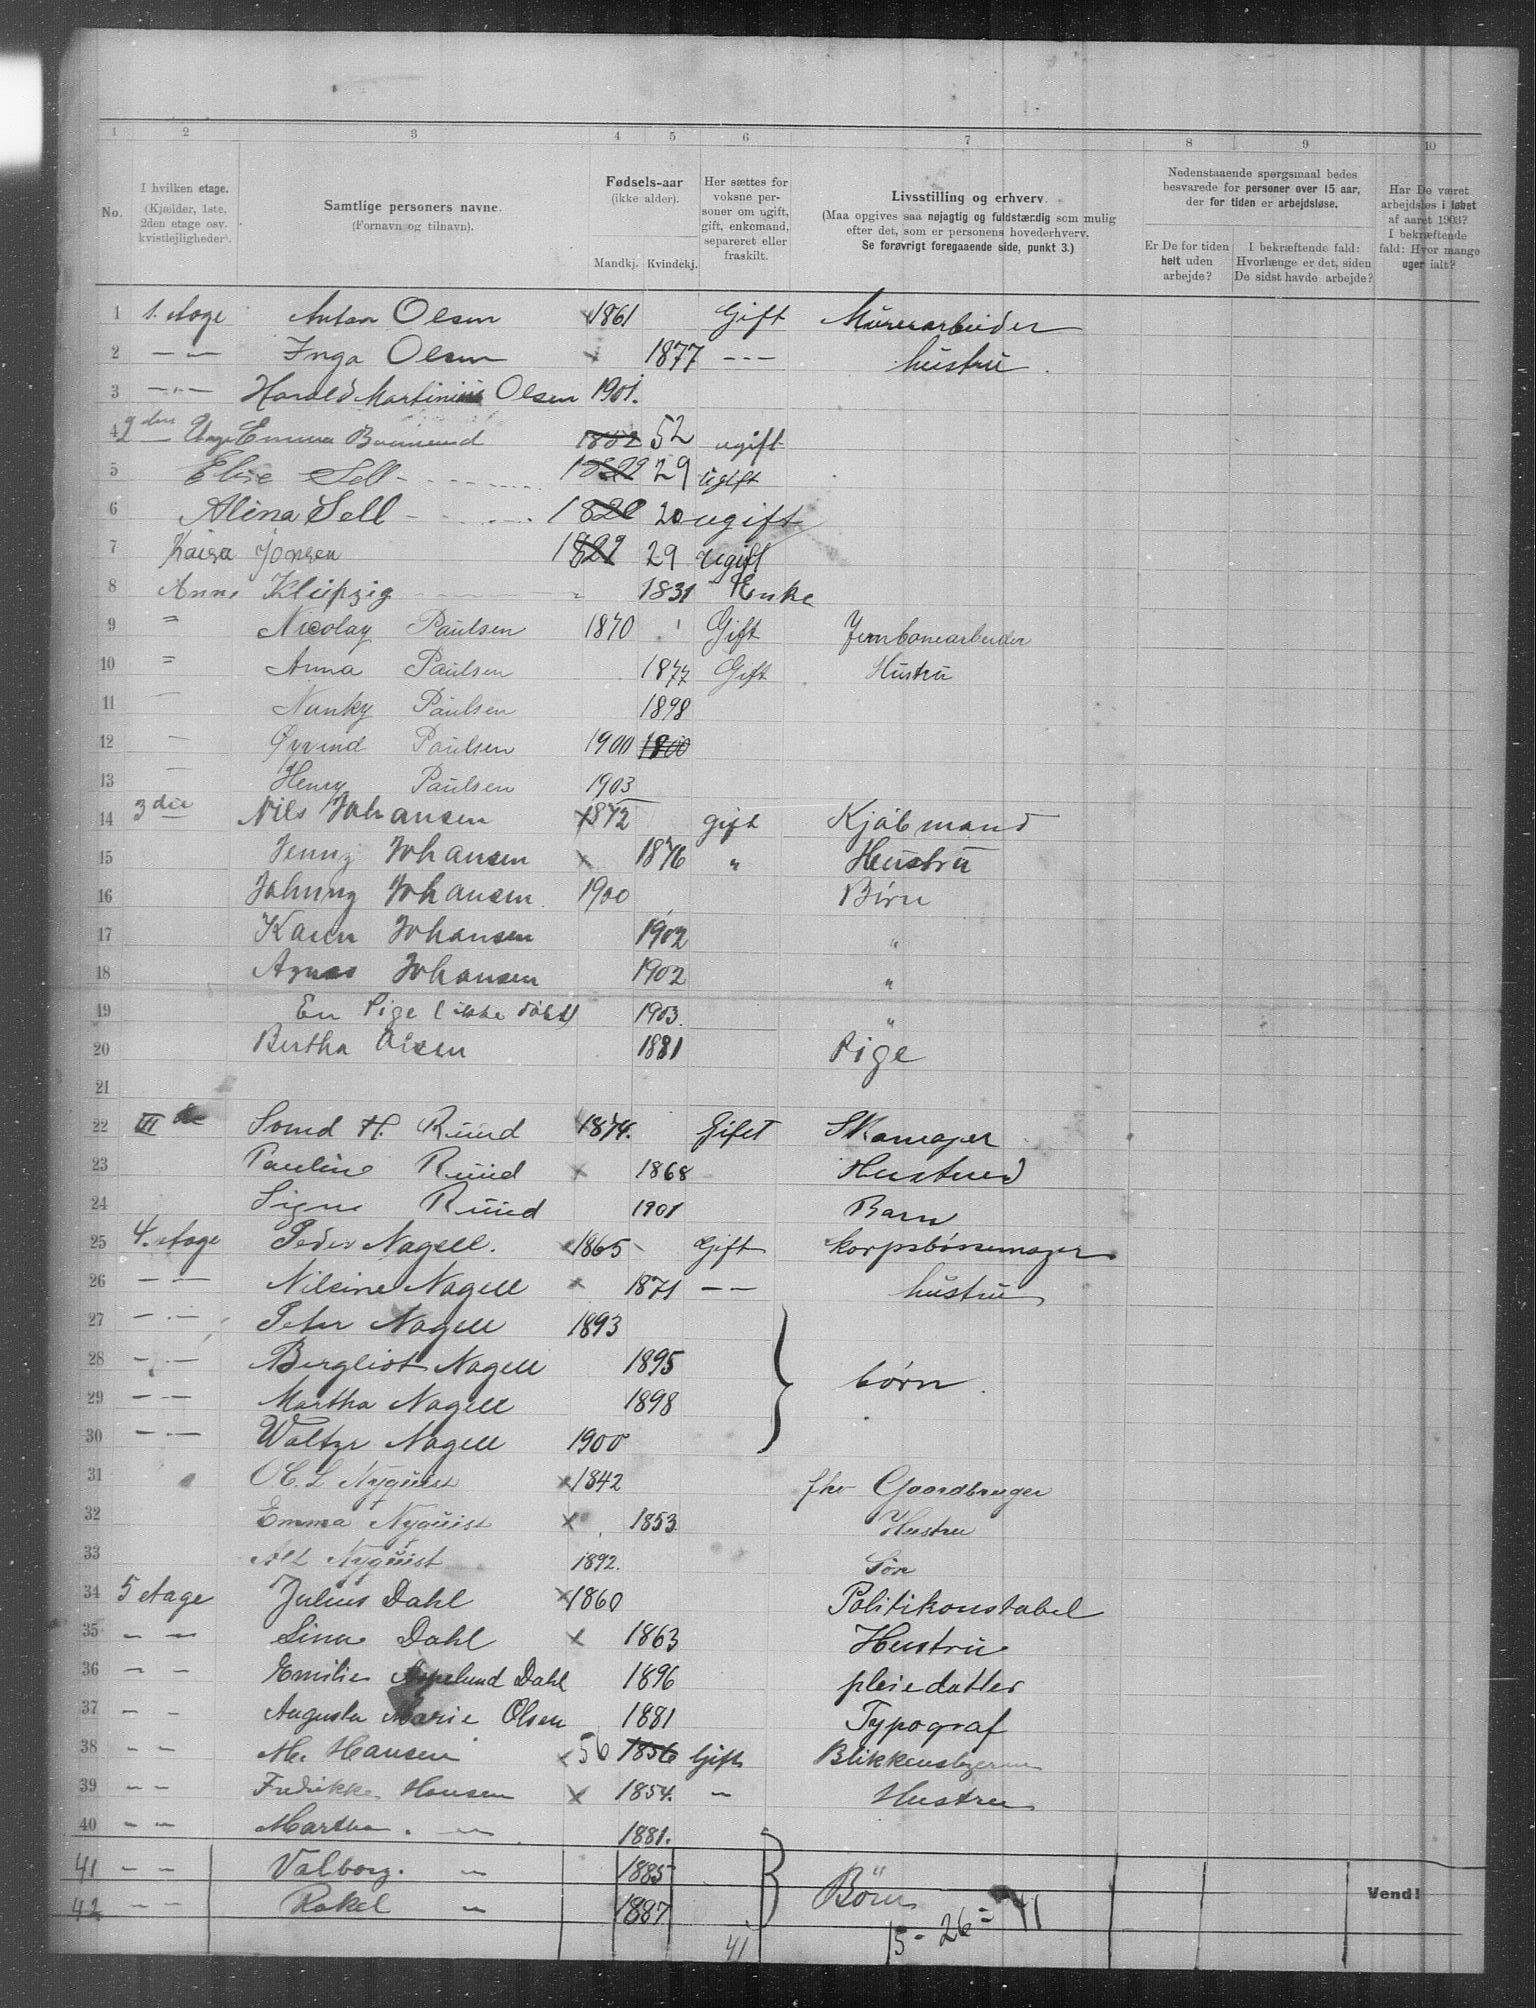 1 2 3 4 5 6 7 8 9 10
No. I hvilken etage. (Kjælder, 1ste, 2den etage osv. kvistleiligheder). Samtlige personers navne. (Fornavn og tilnavn). Fødsels-aar (ikke alder). Mandkj. Kvindekj. Her sættes for voksne personer om ugift, gift, enkemand, separeret eller fraskilt. Livsstilling og erhverv. (Maa opgives saa nøjagtig og fuldstændig som mulig efter det, som er personens hovederhverv. Se forøvrigt foregaaende side, punkt 3.) Nedenstaaende spørgsmaal bedes besvarede for personer over 15 aar, der for tiden er arbejdsløse. Er De for tiden helt uden arbejde? I bekræftende fald: Hvorlænge er det, siden De sidst havde arbejde? Har De været arbejdsløs i løbet af aaret 1903? I bekræftende fald: Hvor mange uger ialt?
1 1. Etage Anton Olsen 1861 Gift Murerarbeider
2 — — Inga Olsen x 1877 - - - hustru
3 — " — Harald Martinius Olsen 1901.
4 2den Etage Emma 1852 52 ugift
5 Elise Sell 1829 29 ugift
6 Alina Sell 1820 20 ugift
7 Kaisa Jonsen 1829 29 ugift
8 Anne Kleipzig 1831 Enke
9 " Nicolay Paulsen 1870 Gift Jernbanearbeider
10 " Anna Paulsen 1877 Gift Hustru
11 Nanky Paulsen 1898
12 Øyvind Paulsen 1900 1800
13 Henry Paulsen 1903
14 3die Nils Johansen x1872 gift Kjøbmand
15 Jenny Johansen x 1876 " Hustru
16 Johnny Johansen 1900 Børn
17 Karen Johansen 1902 "
18 Agnes Johansen 1902 "
19 En Pige (ikke døbt) 1903. "
20 Bertha Olsen 1881 Pige
21
22 III de H. Ruud x1874. Gift Skomager
23 Pauline Ruud x 1868 Hustrue
24 Signe Ruud 1901 Barn
25 4. Etage Peder Nagell. x1865 Gift Korpsbøssemager
26 — — Nilsine Nagell x 1871 — — hustru
27 — · — Peter Nagell 1893
28 — · — Bergliot Nagell 1895 børn.
29 — — Martha Nagell 1898
30 — · — Walter Nagell 1900
31 O. L. Nyquist x1842 fhv Gaardbruger
32 Emma Nyquist x 1853 Hustru
33 Alf Nyquist 1892. Søn
34 5 Etage Julius Dahl x1860 Politikonstabel
35 — — Lina Dahl x 1863 Hustru
36 — — Emilie Dahl 1896 pleiedatter
37 — — Augusta Marie Olsen 1881 Typograf
38 — — M. Hansen x56 1856 Gift
39 — — Fredrikke Hansen x 1854. — Hustru
40 — — Martha. — 1881.
41 — — Valborg. — 1885 Børn Vend!
42 — Rakel — 1887
15 - 26 = 41
41